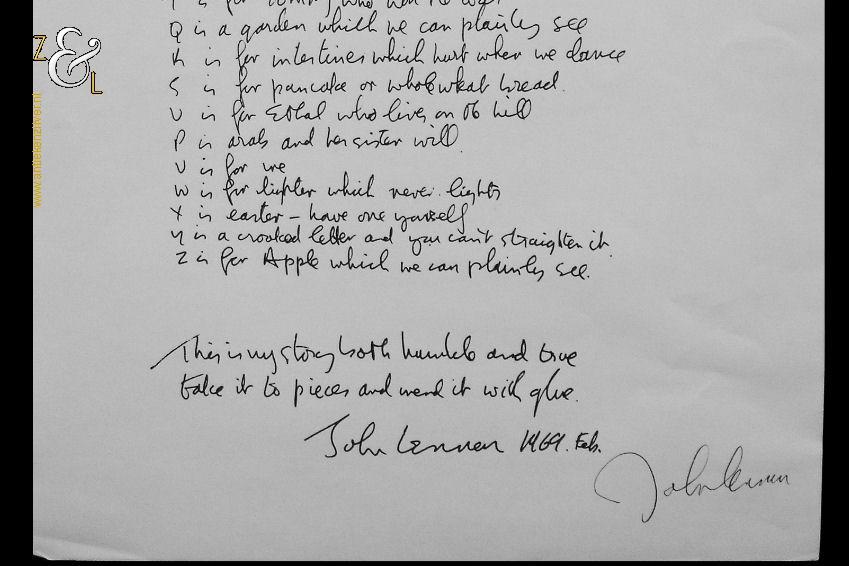 Z & L
www.antiekenzilver.nl
is for Tommy who won the war
Q is a garden which we can plainley see
R is for intestines which hurt when we dance
S is for pancake or wholewheat bread.
U is for Ethel who lives on the hill
P is arab and her sister will.
V is for me
W is for lighter which never lights
X is easter – have one yourself
Y is a crooked letter and you can't straighten it.
Z is for Apple which we can plainley see.
This is my story both humble and true
take it to pieces and mend it with glue.
John Lennon 1969. Feb.
John Lennon